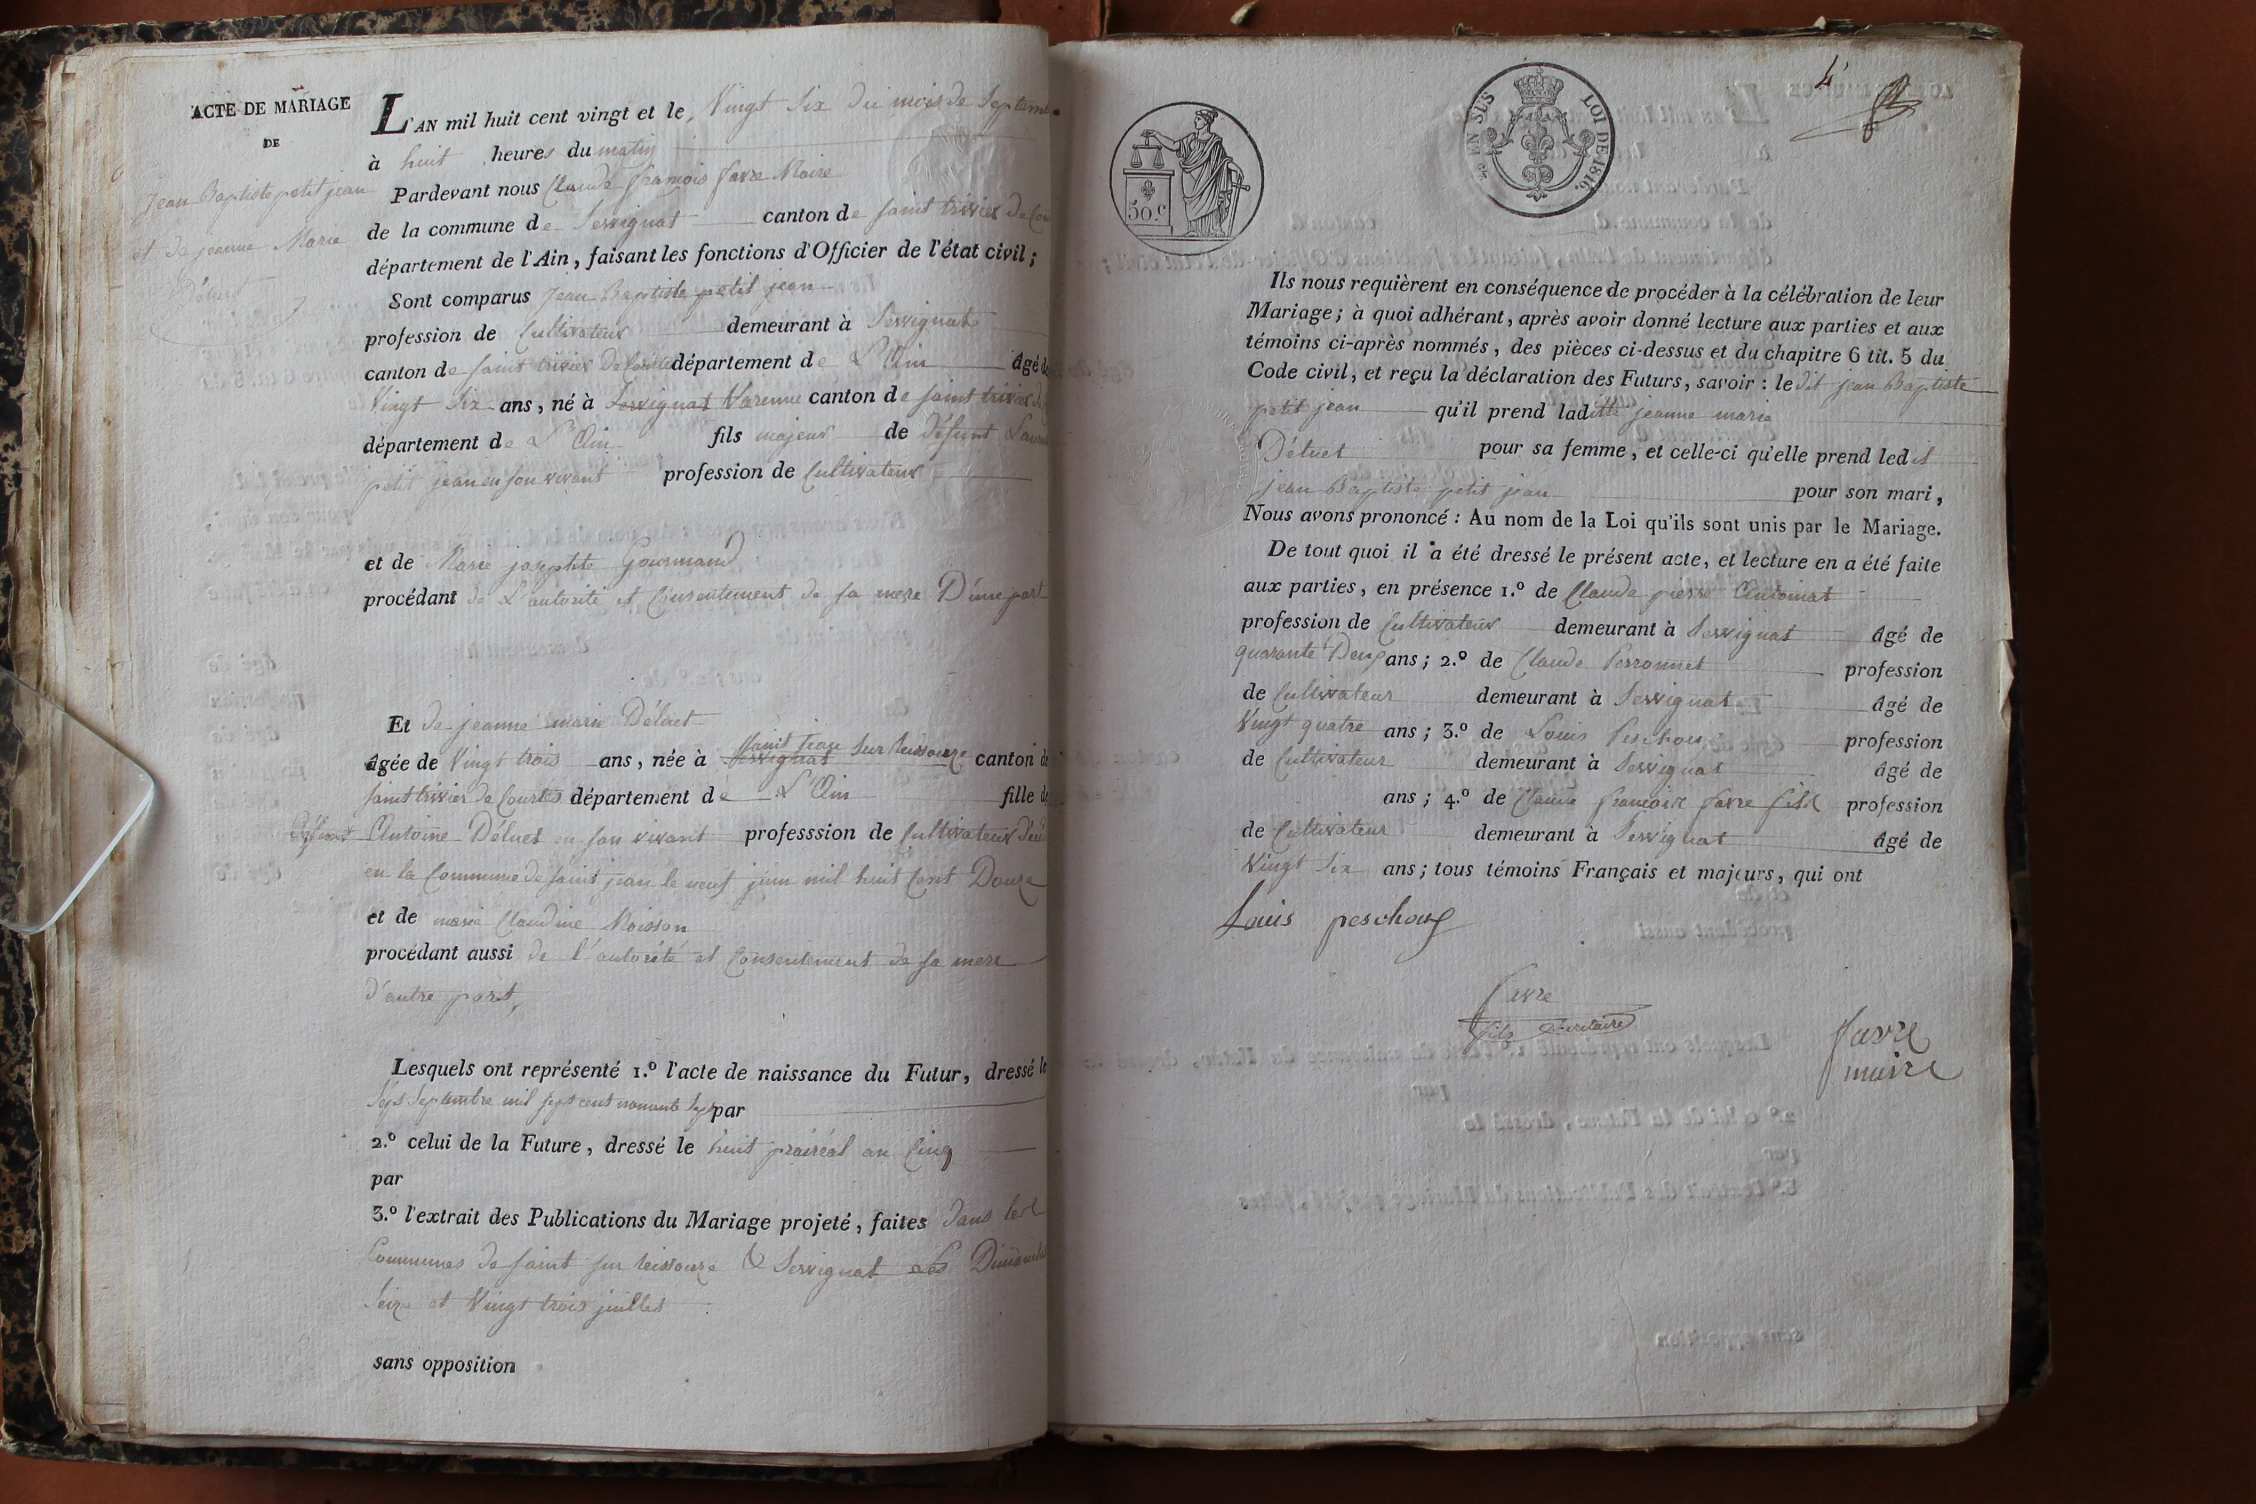 ACTE DE MARIAGE
DE
Jean Baptiste petit jean
et de jeanne Marie
Déluet
L'AN mil huit cent vingt et le Vingt Six du mois de Septembre
à huit heures du matin
Pardevant nous Claude françois favre Maire
de la commune de Servignat canton de saint trivier de Cour
département de l'Ain, faisant les fonctions d'Officier de l'état civil;
Sont comparus Jean Baptiste petit jean
profession de Cultivateur demeurant à Servignat
canton de saint trivier de Courtes département de L'Ain âgé de
Vingt Six ans, né à Servignat Varenne canton de saint trivier de
département de L'Ain fils majeur de défunt
petit jean en son vivant profession de Cultivateur
et de Marie josephte Gourmand
procédant de L'autorité et Consentement de sa mere D'une part
Et de jeanne marie Déluet
âgée de Vingt trois ans, née à Servignat saint jean sur Reissouze canton de
saint trivier de Courtes département de L'Ain fille de
défunt Antoine Déluet en son vivant professsion de Cultivateur
en la Commune de saint jean le neuf juin mil huit Cent Douze
et de marie Claudine Moisson
procédant aussi de l'autorité et Consentement de sa mere
d'autre part,
Lesquels ont représenté 1.º l'acte de naissance du Futur, dressé le
Sept Septembre mil sept cent nonante Sept par
2.º celui de la Future, dressé le huit prairéal an Cinq
par
3.º l'extrait des Publications du Mariage projeté, faites dans les
Communes de saint sur Reissouze & Servignat Les Dimanches
Seize et Vingt trois juillet
sans opposition
4
50.c
EN SUS
LOI DE 1816.
Ils nous requièrent en conséquence de procéder à la célébration de leur
Mariage; à quoi adhérant, après avoir donné lecture aux parties et aux
témoins ci-après nommés, des pièces ci-dessus et du chapitre 6 tit. 5 du
Code civil, et reçu la déclaration des Futurs, savoir: le dit jean Baptiste
petit jean qu'il prend laditte jeanne marie
Déluet pour sa femme, et celle-ci qu'elle prend ledit
jean Baptiste petit jean pour son mari,
Nous avons prononcé: Au nom de la Loi qu'ils sont unis par le Mariage.
De tout quoi il a été dressé le présent acte, et lecture en a été faite
aux parties, en présence 1.º de Claude pierre Antoinat
profession de Cultivateur demeurant à Servignat âgé de
quarante Deux ans; 2.º de Claude Perronnet profession
de Cultivateur demeurant à Servignat âgé de
Vingt quatre ans; 3.º de Louis Peschoux profession
de Cultivateur demeurant à Servignat âgé de
ans; 4.º de Claude françois favre fils profession
de Cultivateur demeurant à Servignat âgé de
Vingt Six ans; tous témoins Français et majeurs, qui ont
Louis peschoux
favre
fils Secretaire
favre
maire